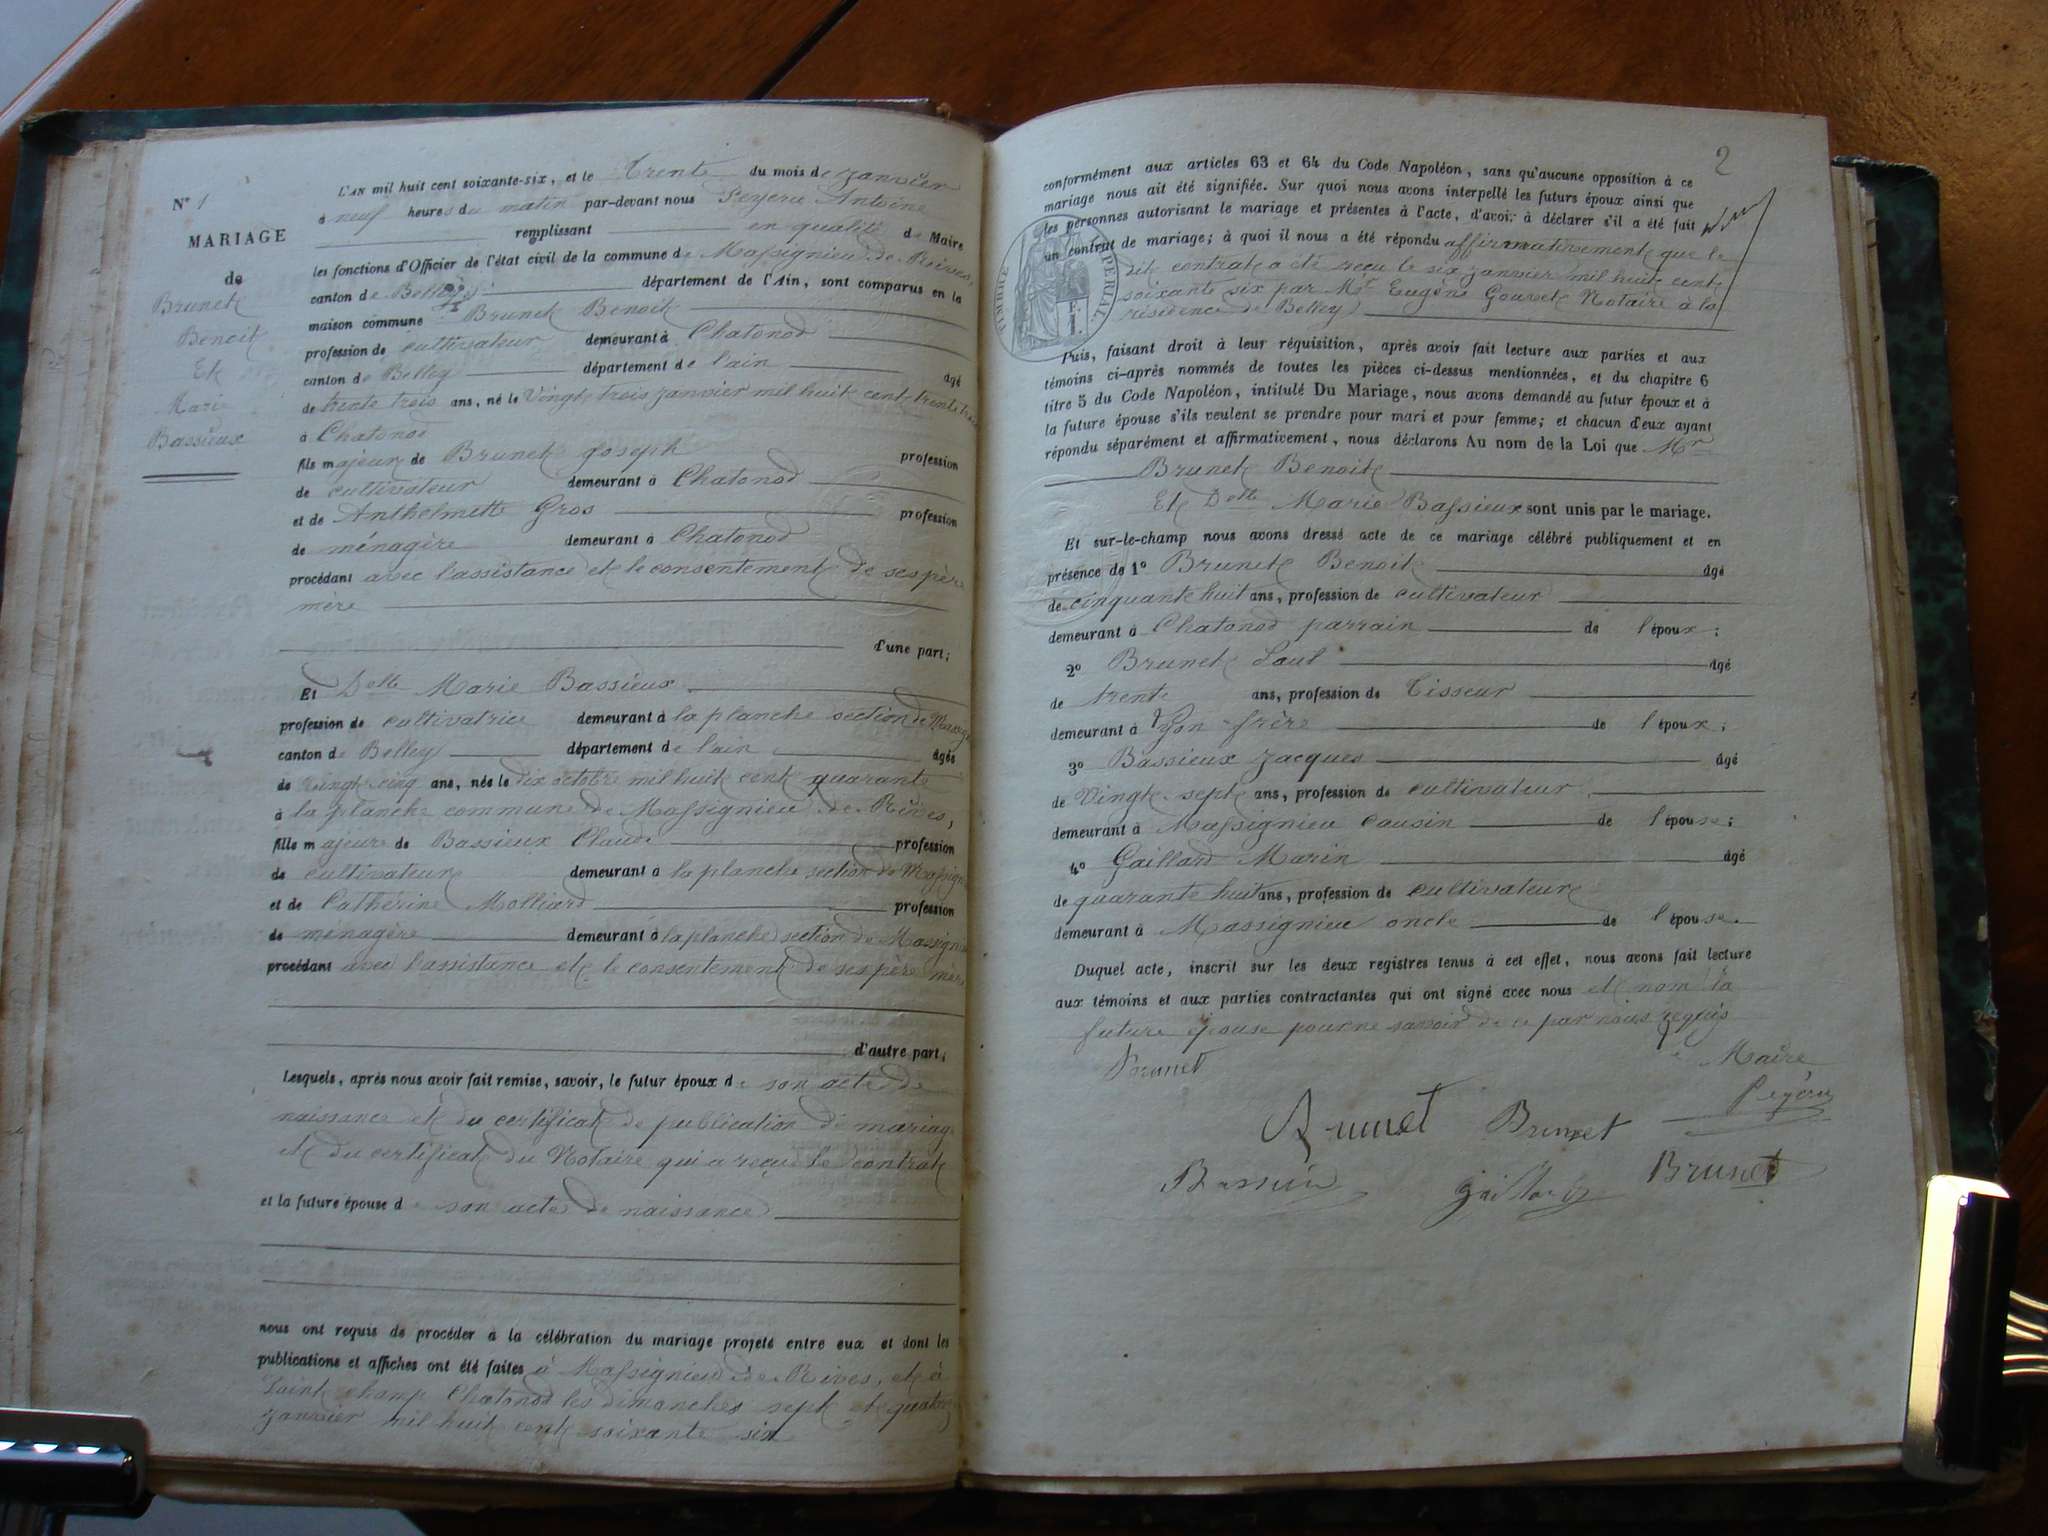 N° 1
MARIAGE
de
Brunet
Benoit
Et
Marie
Bassieux
L'AN mil huit cent soixante-six, et le Trente du mois de janvier
à neuf heures du matin par-devant nous Peyerie Antoine
remplissant en qualité de Maire
les fonctions d'Officier de l'état civil de la commune de Massignieu de Rives,
canton de Belley département de l'Ain, sont comparus en la
maison commune Brunet Benoit
profession de cultivateur demeurant à Chatonod
canton de Belley département de l'ain âgé
de trente trois ans, né le Vingt trois janvier mil huit cent trente trois
à Chatonod
fils majeur de Brunet Joseph profession
de cultivateur demeurant à Chatonod
et de Anthelmette Gros profession
de ménagère demeurant à Chatonod
procédant avec l'assistance et le consentement de ses père
mère
d'une part;
Et Delle Marie Bassieux
profession de cultivatrice demeurant à la planche section de Massig
canton de Belley département de l'ain âgée
de vingt cinq ans, née le dix octobre mil huit cent quarante
à la planche commune de Massignieu de Rives,
fille majeure de Bassieux Claude profession
de cultivateur demeurant à la planche section de Massign
et de Cathérine Molliard profession
de ménagère demeurant à la planche section de Massign
procédant avec l'assistance et le consentement de ses père mère
d'autre part;
Lesquels, après nous avoir fait remise, savoir, le futur époux de son acte de
naissance et du certificat de publication de mariage
et du certificat du Notaire qui a reçu le contrat
et la future épouse de son acte de naissance
nous ont requis de procéder à la célébration du mariage projeté entre eux et dont les
publications et affiches ont été faites à Massignieu de Rives, et à
Saint champ Chatonod les dimanches sept et quatorze
janvier mil huit cent soixante six
2
conformément aux articles 63 et 64 du Code Napoléon, sans qu'aucune opposition à ce
mariage nous ait été signifiée. Sur quoi nous avons interpellé les futurs époux ainsi que
les personnes autorisant le mariage et présentes à l'acte, d'avoir à déclarer s'il a été fait
un contrat de mariage; à quoi il nous a été répondu affirmativement que le
dit contrat a été reçu le six janvier mil huit cent
soixante six par Mt Eugène Gouvet Notaire à la
résidence de Belley
TIMBRE IMPERIAL
1 F.
Puis, faisant droit à leur réquisition, après avoir fait lecture aux parties et aux
témoins ci-après nommés de toutes les pièces ci-dessus mentionnées, et du chapitre 6
titre 5 du Code Napoléon, intitulé Du Mariage, nous avons demandé au futur époux et à
la future épouse s'ils veulent se prendre pour mari et pour femme; et chacun d'eux ayant
répondu séparément et affirmativement, nous déclarons Au nom de la Loi que Mr
Brunet Benoit
Et Delle Marie Bassieux sont unis par le mariage.
Et sur-le-champ nous avons dressé acte de ce mariage célébré publiquement et en
présence de 1° Brunet Benoit âgé
de cinquante huit ans, profession de cultivateur
demeurant à Chatonod parrain de l'époux;
2° Brunet Paul âgé
de trente ans, profession de Tisseur
demeurant à Lyon frère de l'époux;
3° Bassieux Jacques âgé
de Vingt sept ans, profession de cultivateur
demeurant à Massignieu cousin de l'épouse;
4° Gaillard Marin âgé
de quarante huit ans, profession de cultivateur
demeurant à Massignieu oncle de l'épouse.
Duquel acte, inscrit sur les deux registres tenus à cet effet, nous avons fait lecture
aux témoins et aux parties contractantes qui ont signé avec nous et nom la
future épouse pour ne savoir de ce par nous requis
Brunet Maire
Peyerie
Brunet Brunet
Bassieu Gaillard Brunet